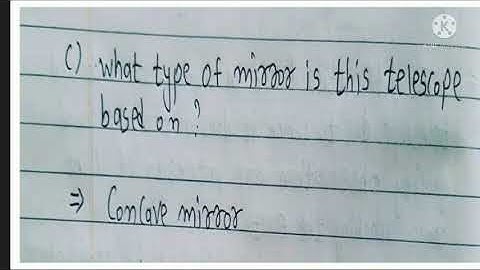 c) What type of mirror is this telescope
based on ?
⇒ Concave mirror